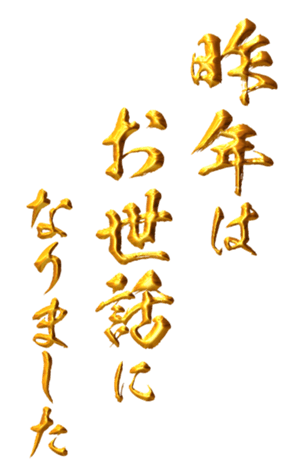 昨年は
お世話に
なりました